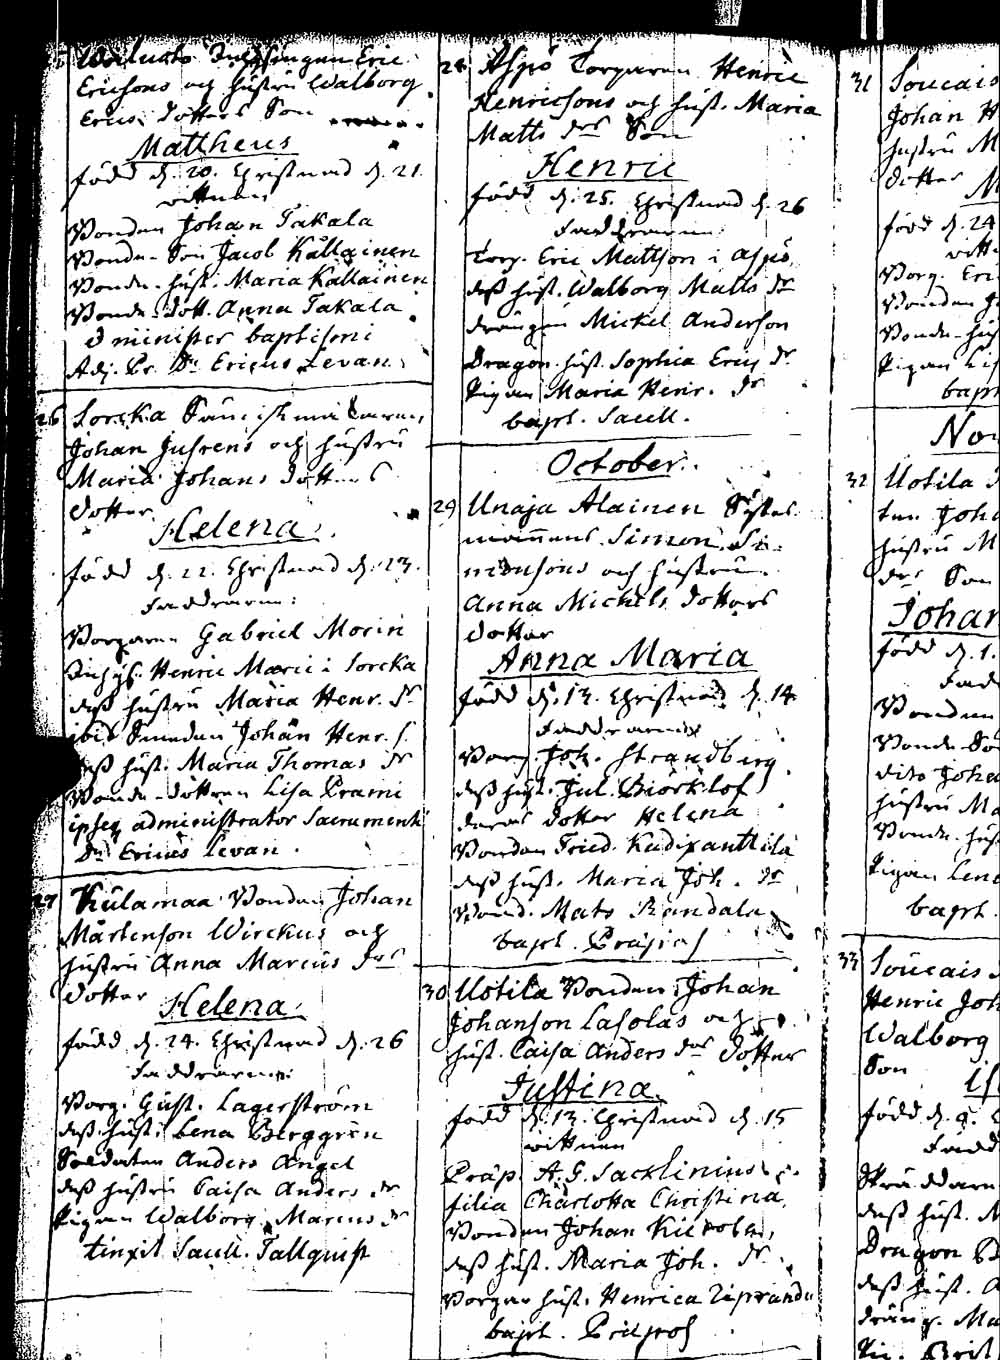 Ericsons och hustru Walborg
Erics dotters Son
Mattheus
född d. 20. Christnad d. 21.
vittnen
Bonden Johan Takala
Bonde-Son Jacob Kallainen
Bonde-hust. Maria Kallainen
Bonde-dott. Anna Takala
minister baptismi
Adj. Pr. Dn Ericus Levan
26 Sorcka
Johan och hustru
Maria Johans dotters
dotter
Helena
född d. 22. Christnad d. 23.
Faddrarne:
Borgaren Gabriel Morin
Inhys. Henric Marci i Sorcka
dess hustru Maria Henr. dr
ibid Smeden Johan Henr. s.
dess hust. Maria Thomas dr
Bonde-dottren Lisa Prami
ipseq administrator Sacramenti
Dn Ericus Levan.
27 Kulamaa Bonden Johan
Mårtenson Wirckus och
hustru Anna Marcus drs
dotter Helena
född d. 24. Christnad d. 26
Faddrarne:
Borg. Gust. Lagerström
dess hust. Lena Berggren
Soldaten Anders Angel
dess hustru Caisa Anders dr
Pigan Walborg Marcus dr
tinxit Sacell. Tallquist
28 Aspö Torparen Henric
Henricsons och hust. Maria
Matts drs Son
Henric
född d. 25. Christnad d. 26
Faddrarne:
Torp. Eric Mattson i Aspö
dess hust. Walborg Matts dr
drängen Mickel Anderson
Dragon hust. Sophia Erics dr
Pigan Maria Henr. dr
bapt. Sacell.
October.
29 Unaja Alainen
Simon Si-
monsons och hustru
Anna Michels dotters
dotter
Anna Maria
född d. 13. Christnad d. 14
Faddrarne
Borg. Joh. Strandberg
dess hust. Jul. Biörklöf
deras dotter Helena
Bonden Fried.
dess hust. Maria Joh. dr
Bond. Mats Randala
bapt. Præpos
30 Uotila Bonden Johan
Johanson Lasolas och
hust. Caisa Anders drs dotter
Justina
född d. 13. Christnad d. 15
vittnen
Præp. A. G. Sacklinius
filia Charlotta Christina
Bonden Johan
dess hust. Maria Joh. dr
Borgar hust. Henrica
bapt. Præpos
31 Soucais
Johan H
hustru M
dotter M
född d. 24
vitt
Borg. Eri
Bonden J
Bonde-hus
Pigan Lis
bapt
Nov
32 Uotila
Joha
hustru M
drs Son
Johan
född d. 1.
Fadd
Bonden
Bonde-Son
dito Joha
hustru Ma
Bonde-hus
Pigan Lena
bapt.
33 Soucais
Henric Joh
Walborg
Son
född d. 9.
Fadd
Skräddare
dess hust. M
Dragon B
dess hust. A
dräng. Ma
Pig. Brit